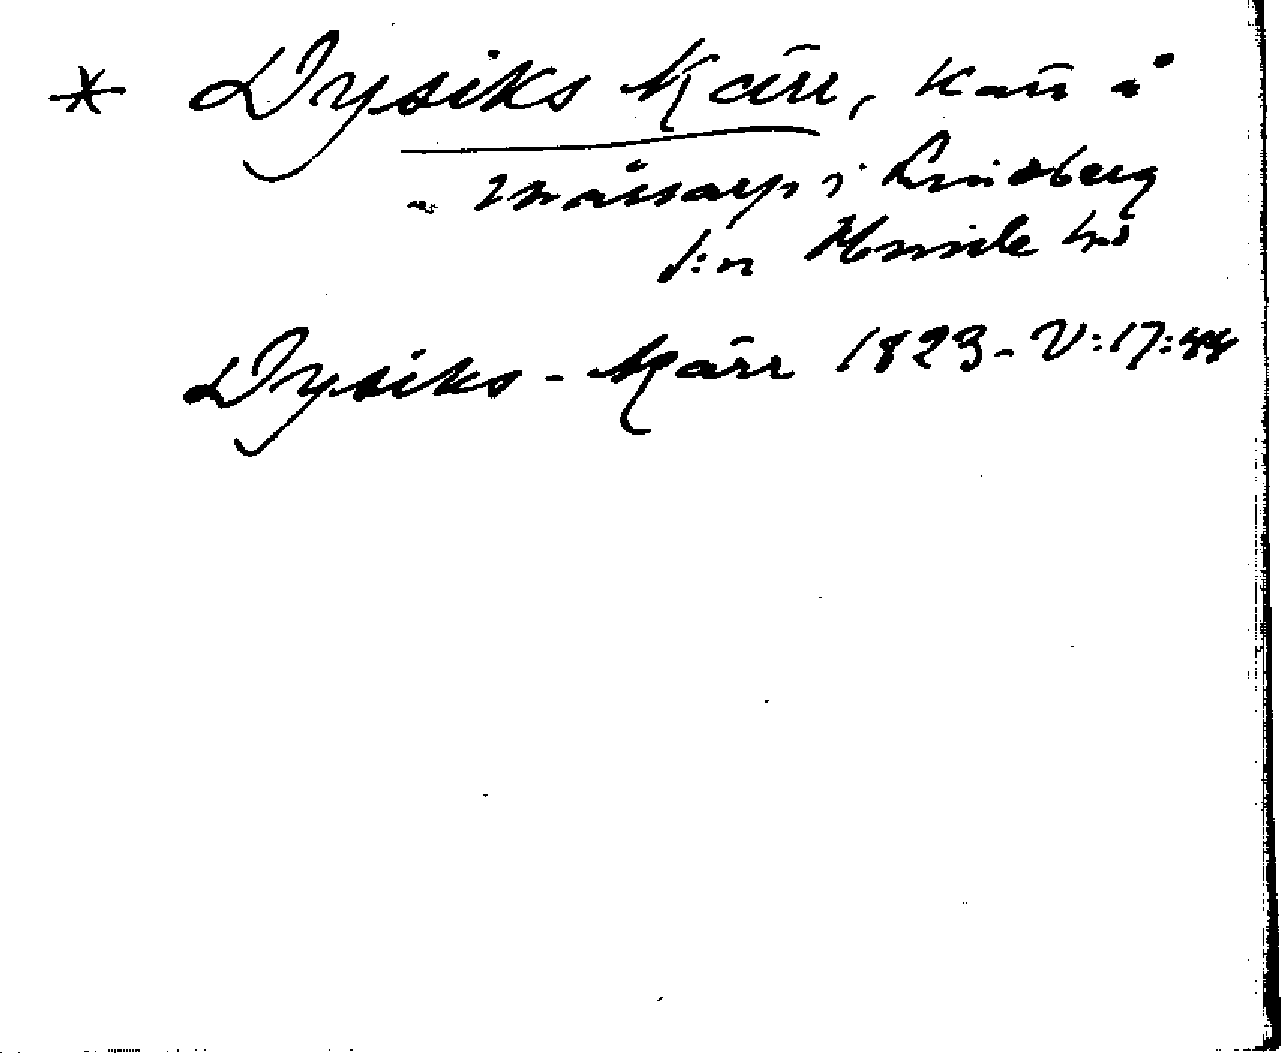 * Dysiks Kärr, kärr å
Måsarp i Lindberg
s:n Himle hd
Dysiks-Kärr 1823-V:17:44